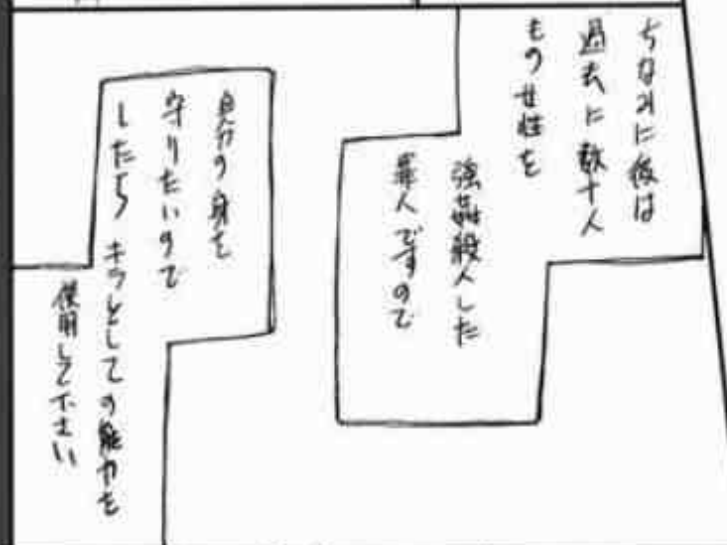 ちなみに彼は
過去に数十人
もの女性を
強姦殺人した
罪人ですので
自分の身を
守りたいので
したら キラとしての能力を
使用して下さい